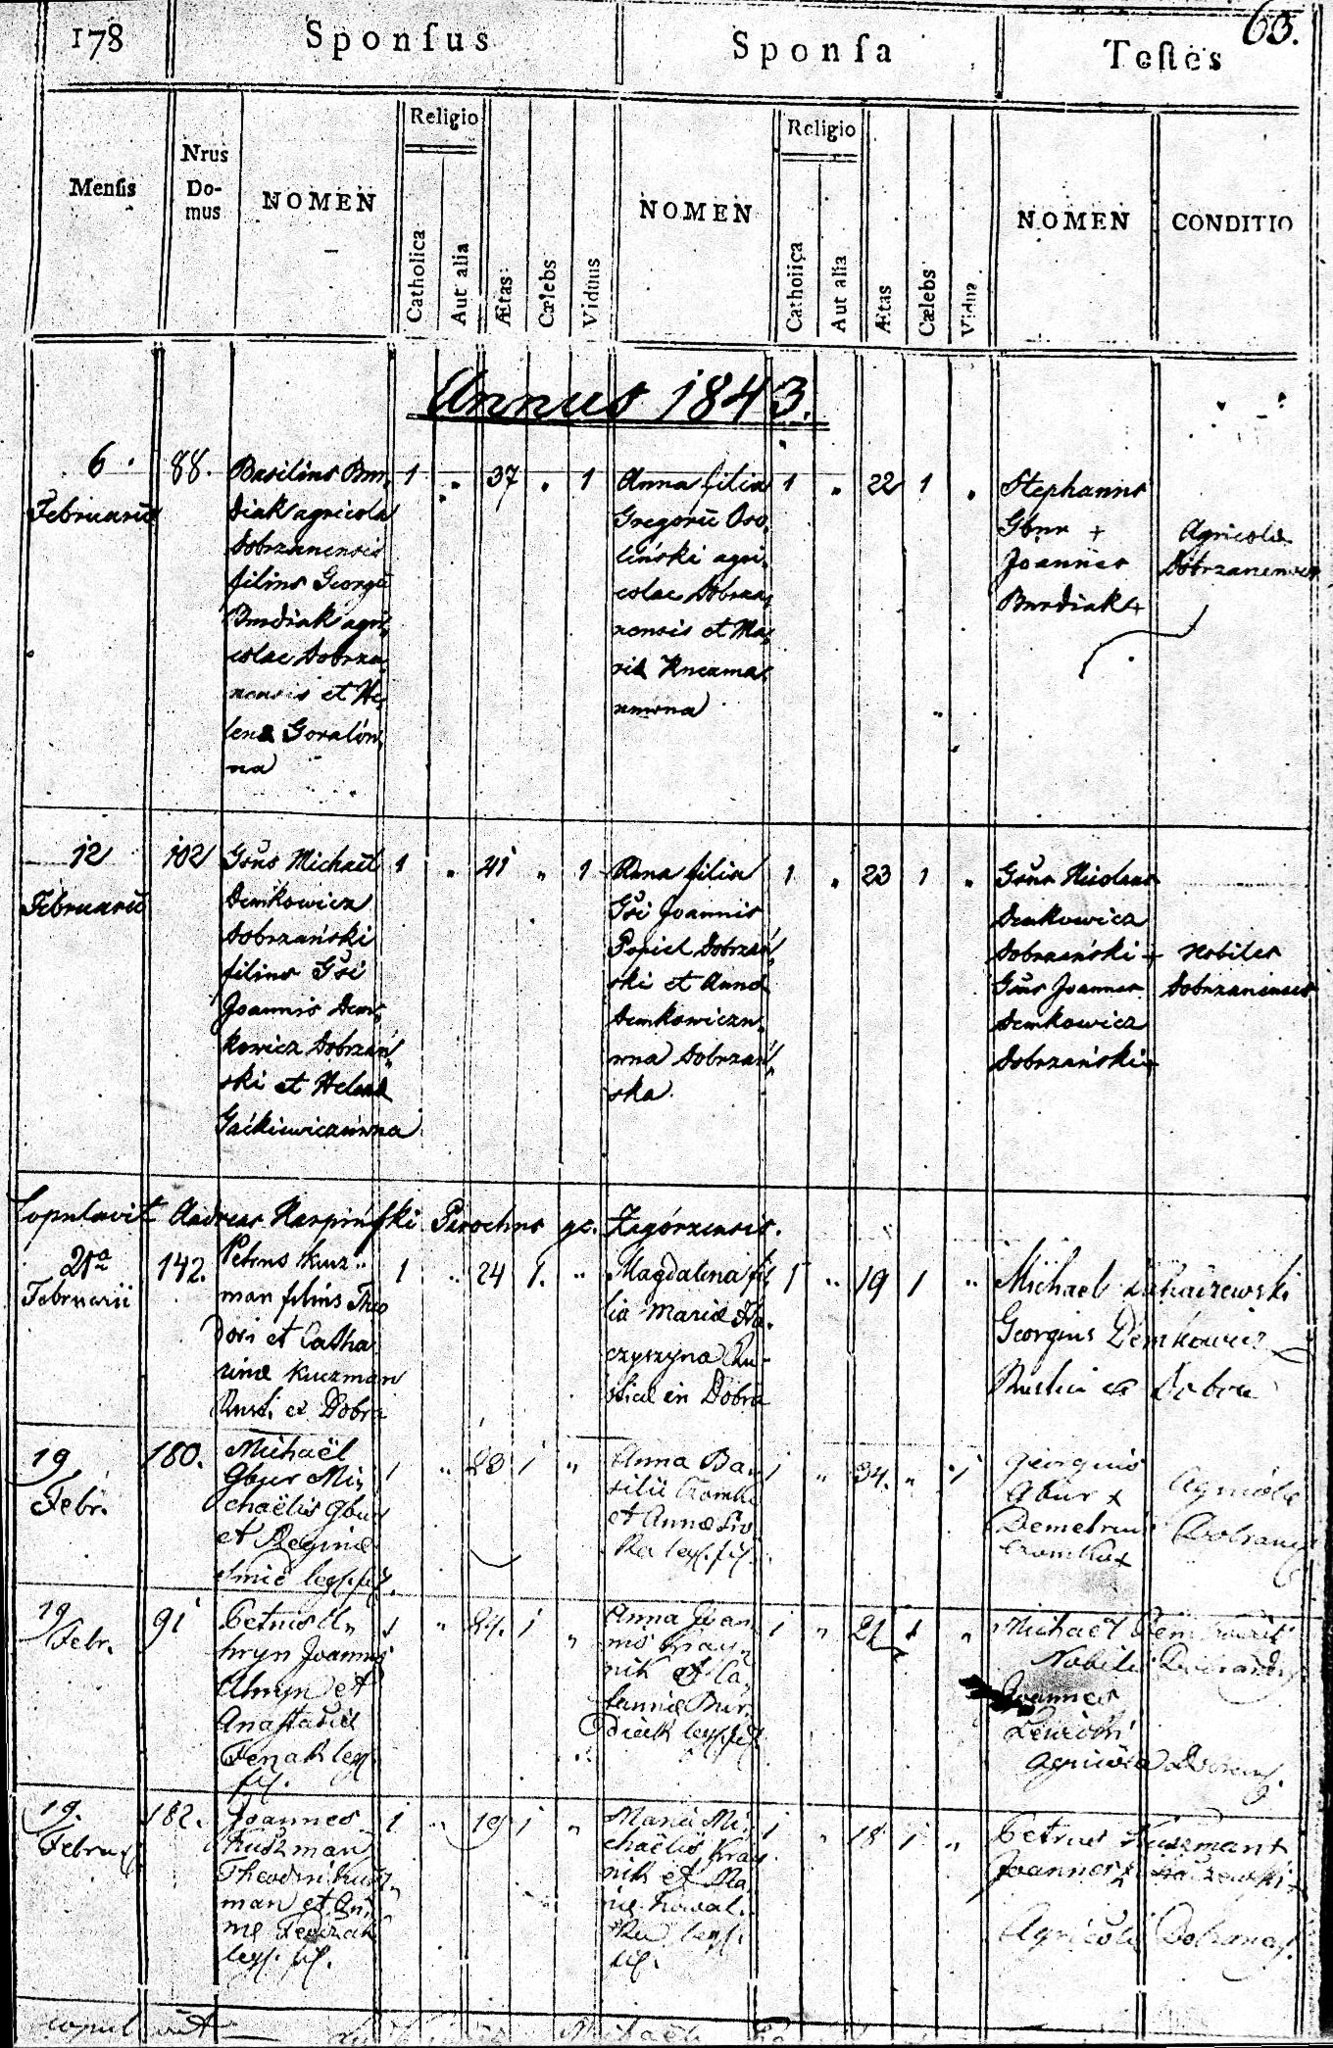 178 Sponſus Sponſa Teſtes 63.
Menſis
Nrus Do-
mus
NOMEN
Religio
Catholica
Aut alia
Ætas
Cælebs
Viduus
NOMEN
Religio
Catholica
Aut alia
Ætas
Cælebs
Vidua
NOMEN
CONDITIO
Annus 1843.
6.
Februarii
88.
Basilius Bur,
diak agricola
Dobrzanensis
filius Georgii
Burdiak agri,
colae Dobrza,
nensis et He,
lena Goralów,
na
1 " 37 " 1
Anna filia
Gregorii Oso,
liński agri,
colae Dobrza,
nensis et Ma,
ria Kuczma,
nówna
1 " 22 1 "
Stephanus
Gbur +
Joannes
Burdiak +
Agricolae
Dobrzanenses
12
Februarii
102
Gsus Michael
Demkowicz
Dobrzański
filius Gsi
Joannis Dem,
kowicz Dobrzań,
ski et Helena
Gaćkiewiczówna
1 " 41 " 1
Anna filia
Gsi Joannis
Popiel Dobrzań,
ski et Anna
Demkowiczó,
wna Dobrzań,
ska.
1 " 23 1 "
Gsus Nicolaus
Demkowicz
Dobrzański +
Gsus Joannes
Demkowicz
Dobrzański +
Nobiles
Dobrzanenses
Copulavit Andreas Karpiński Parochus gc. Zagórzensis.
21a
Februarii
142.
Petrus Kucz
man filius Theo
dori et Catha
rinæ Kuczman
Rusti. ex Dobra
1 " 24 1. "
Magdalena fi,
lia Mariæ Ha,
czyszyna Ru-
sticæ in Dobra
1 " 19 1 "
Michael
Georgius Demkowicz
Rustici ex Dobra
19
Febr.
180.
Michaël
Gbur Mi,
chaëlis Gbur
et Reginæ
leg. fil.
1 " 23 1 "
Anna Ba,
silii Cromka
et Annæ
leg. fil.
1 " 34. " 1
Georgius
Gbur +
Demetrius
Cromka +
Agricolæ
19
Febr.
91
Petrus
hryn Joannis
et
Anastasiæ
Fenak leg.
fil.
1 " 24. 1 "
Anna Joan
nis Kray,
nik et
Bur,
diak leg. fil.
1 " 21 1 "
Michaël
Nobilis
Joannes
Agricola
19.
Febru
182.
Joannes
Kuszman
Theodori Kusz,
man et An,
næ
leg. fil.
1 " 19 1 "
Maria Mi,
chaëlis Kray,
nik et Ma,
riæ Kowal,
leg.
fil.
1 " 18 1 "
Petrus Kuszman +
Joannes
Agricolæ
copulavit Michaël